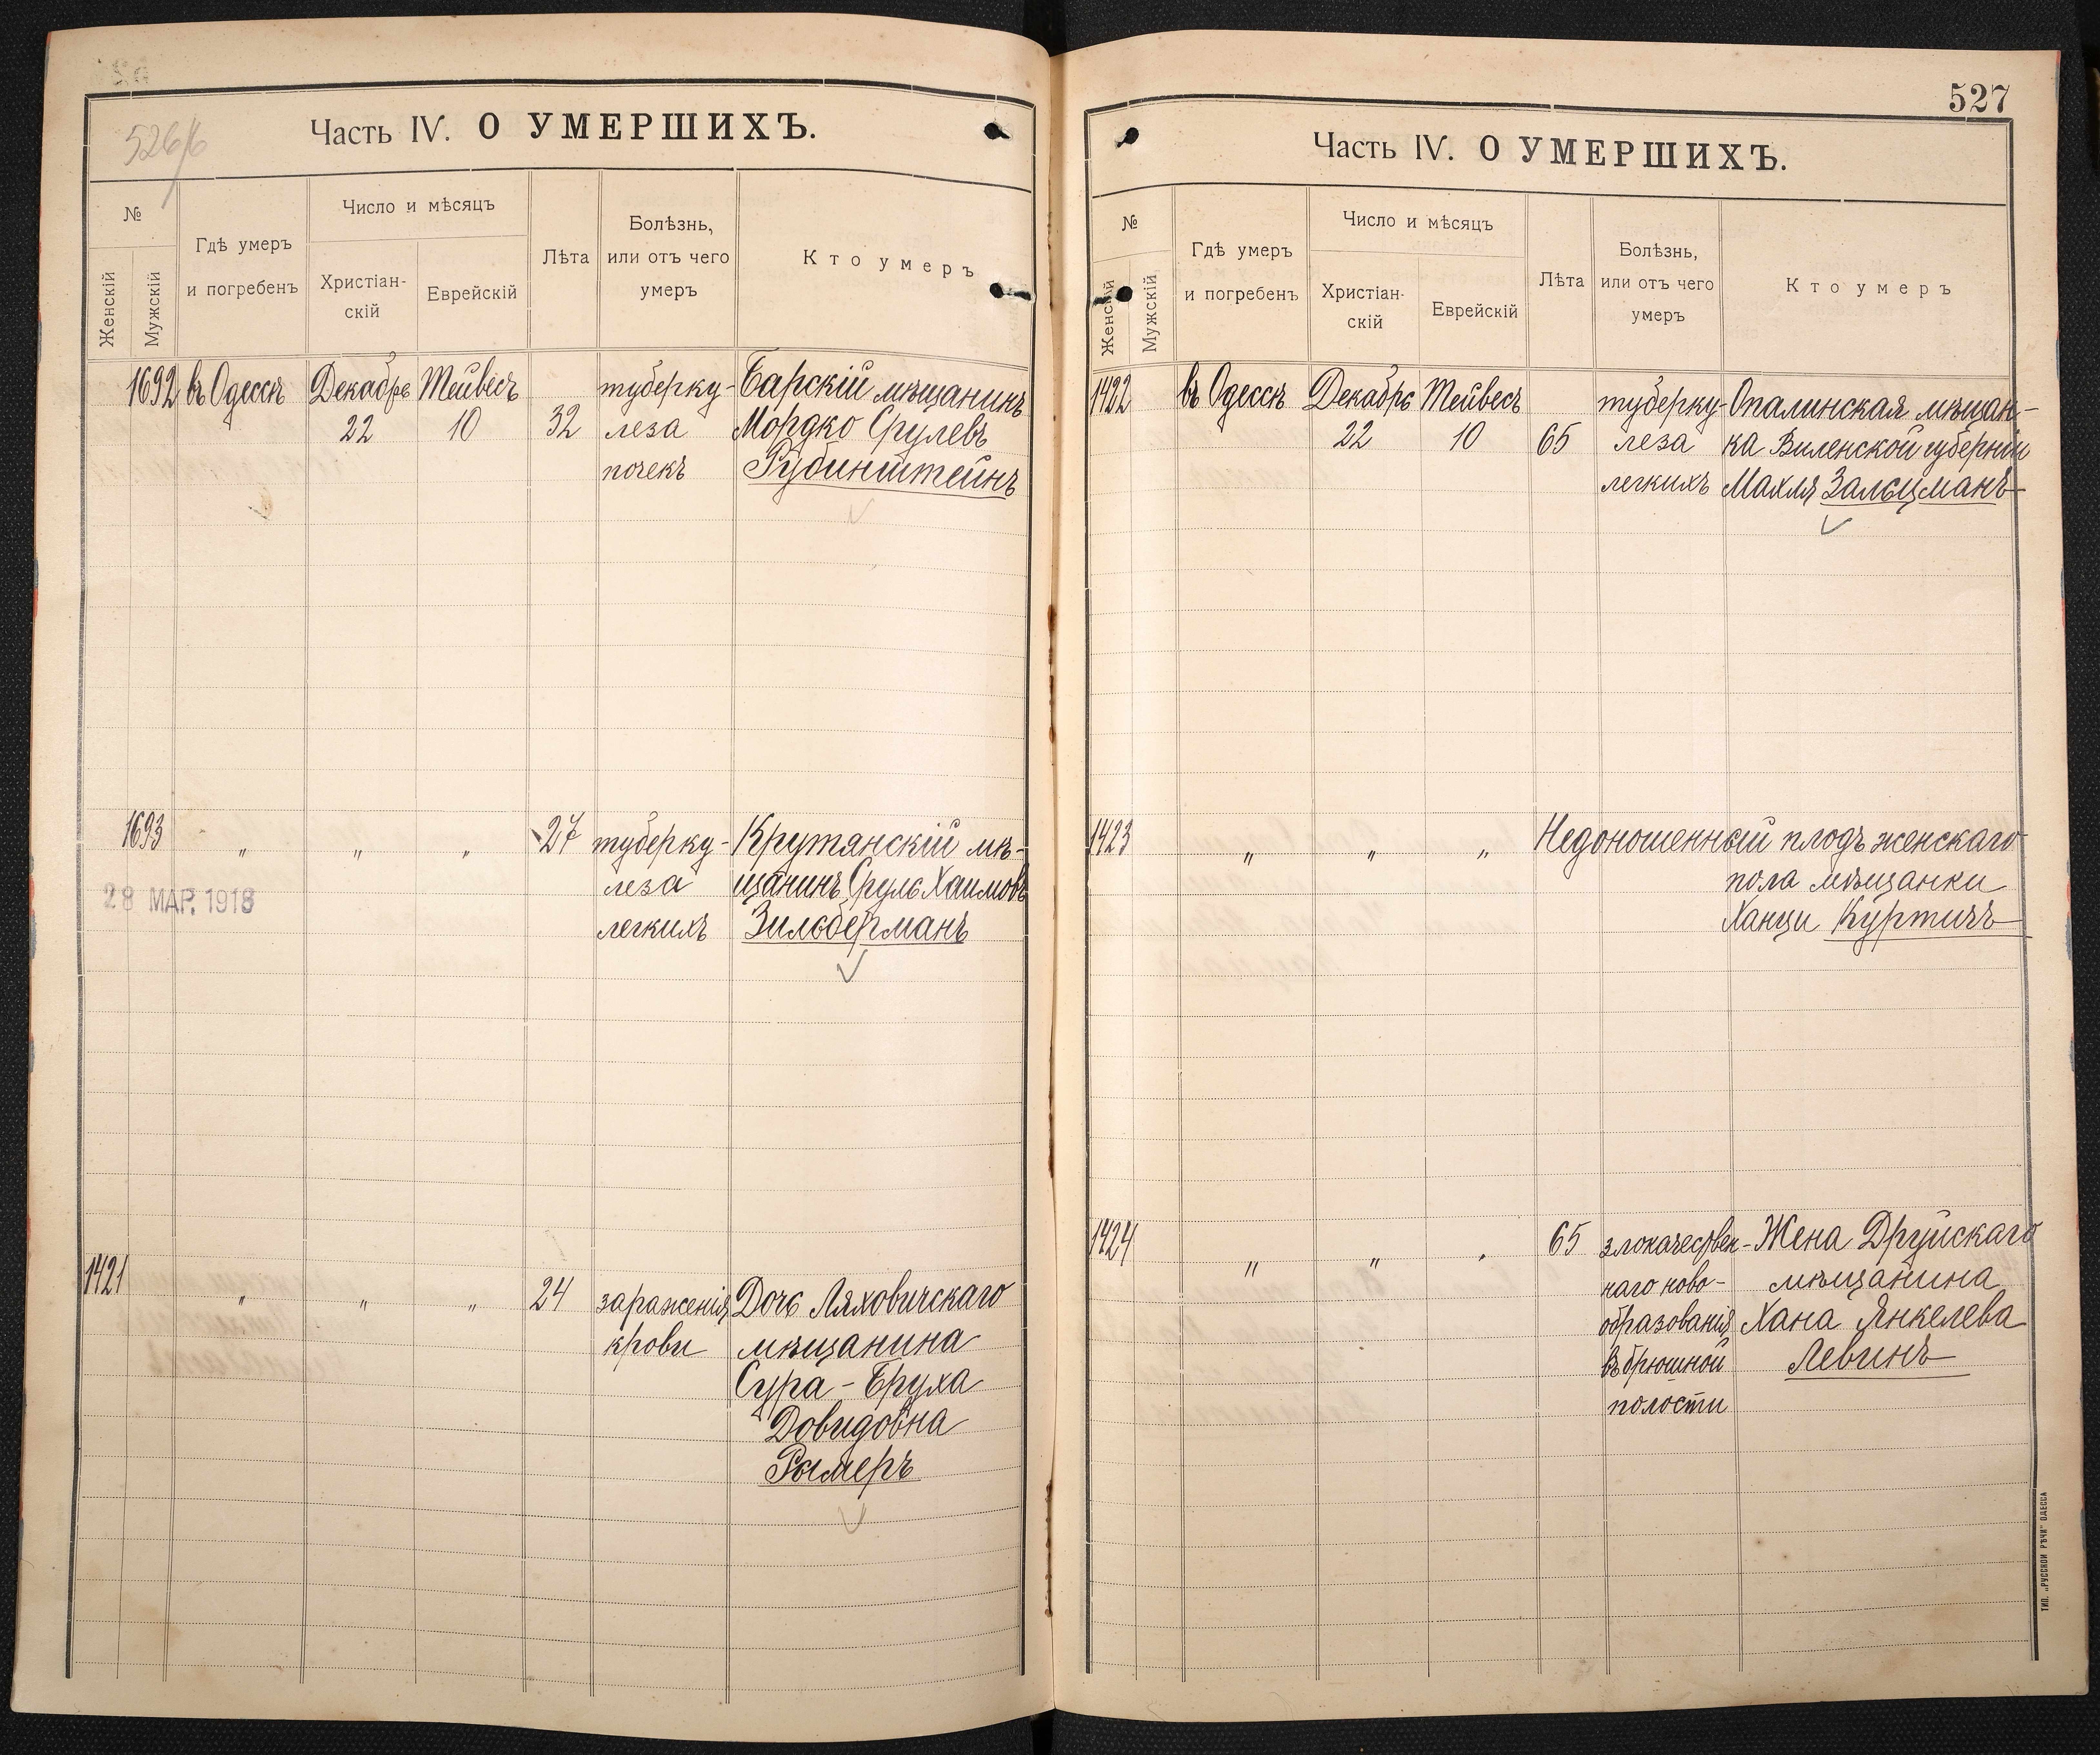 526/б
Часть IV. О УМЕРШИХЪ.
№
Женскій
Мужскій
Гдѣ умеръ
и погребенъ
Число и мѣсяцъ
Христіан-
скій
Еврейскій
Лѣта
Болѣзнь,
или отъ чего
умеръ
Кто умеръ
1692 въ Одессѣ Декабрь Тейвесъ туберку- Барскій мѣщанинъ
22 10 32 леза Мордко Срулевъ
почекъ Рубинштейнъ
1693 " " " 27 туберку- Крутянскій мѣ-
леза щанинъ Сруль Хаимовъ
28 МАР. 1918
легкихъ Зильберманъ
1421 " " " 24 зараженія Дочь Ляховичскаго
крови мѣщанина
Сура-Бруха
Довидовна
Рымеръ
527
Часть IV. О УМЕРШИХЪ.
№
Женскій
Мужскій
Гдѣ умеръ
и погребенъ
Число и мѣсяцъ
Христіан-
скій
Еврейскій
Лѣта
Болѣзнь,
или отъ чего
умеръ
Кто умеръ
1422 въ Одессѣ Декабрь Тейвесъ туберку- Опалинская мѣщан-
22 10 65 леза ка Виленской губерніи
легкихъ Махля Зальцманъ
1423 " " " Недоношенный плодъ женскаго
пола мѣщанки
Ханци Куртичъ
1424 " " " 65 злокачествен- Жена Друйскаго
наго ново- мѣщанина
образованія Хана Янкелева
въ брюшной Левинъ
полости
ТИП. „РУССКОЙ РѢЧИ" ОДЕССА